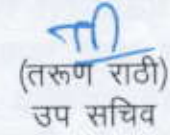 (तरूण राठी)
उप सचिव